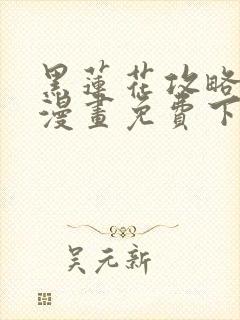 黑蓮花攻略
漫畫免費下
吴元新